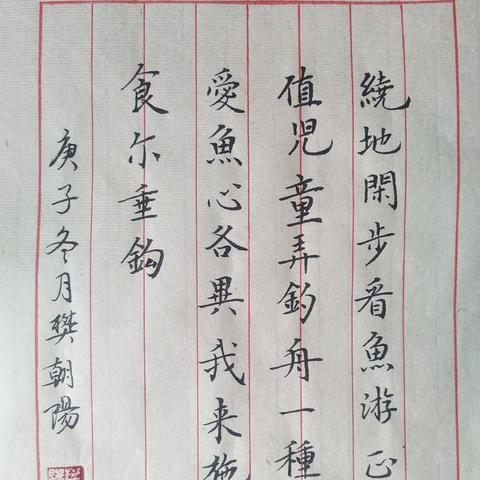 繞地閑步看魚游正
值児童弄釣舟一種
愛魚心各異我来施
食尔垂鈎
庚子冬月樊朝陽